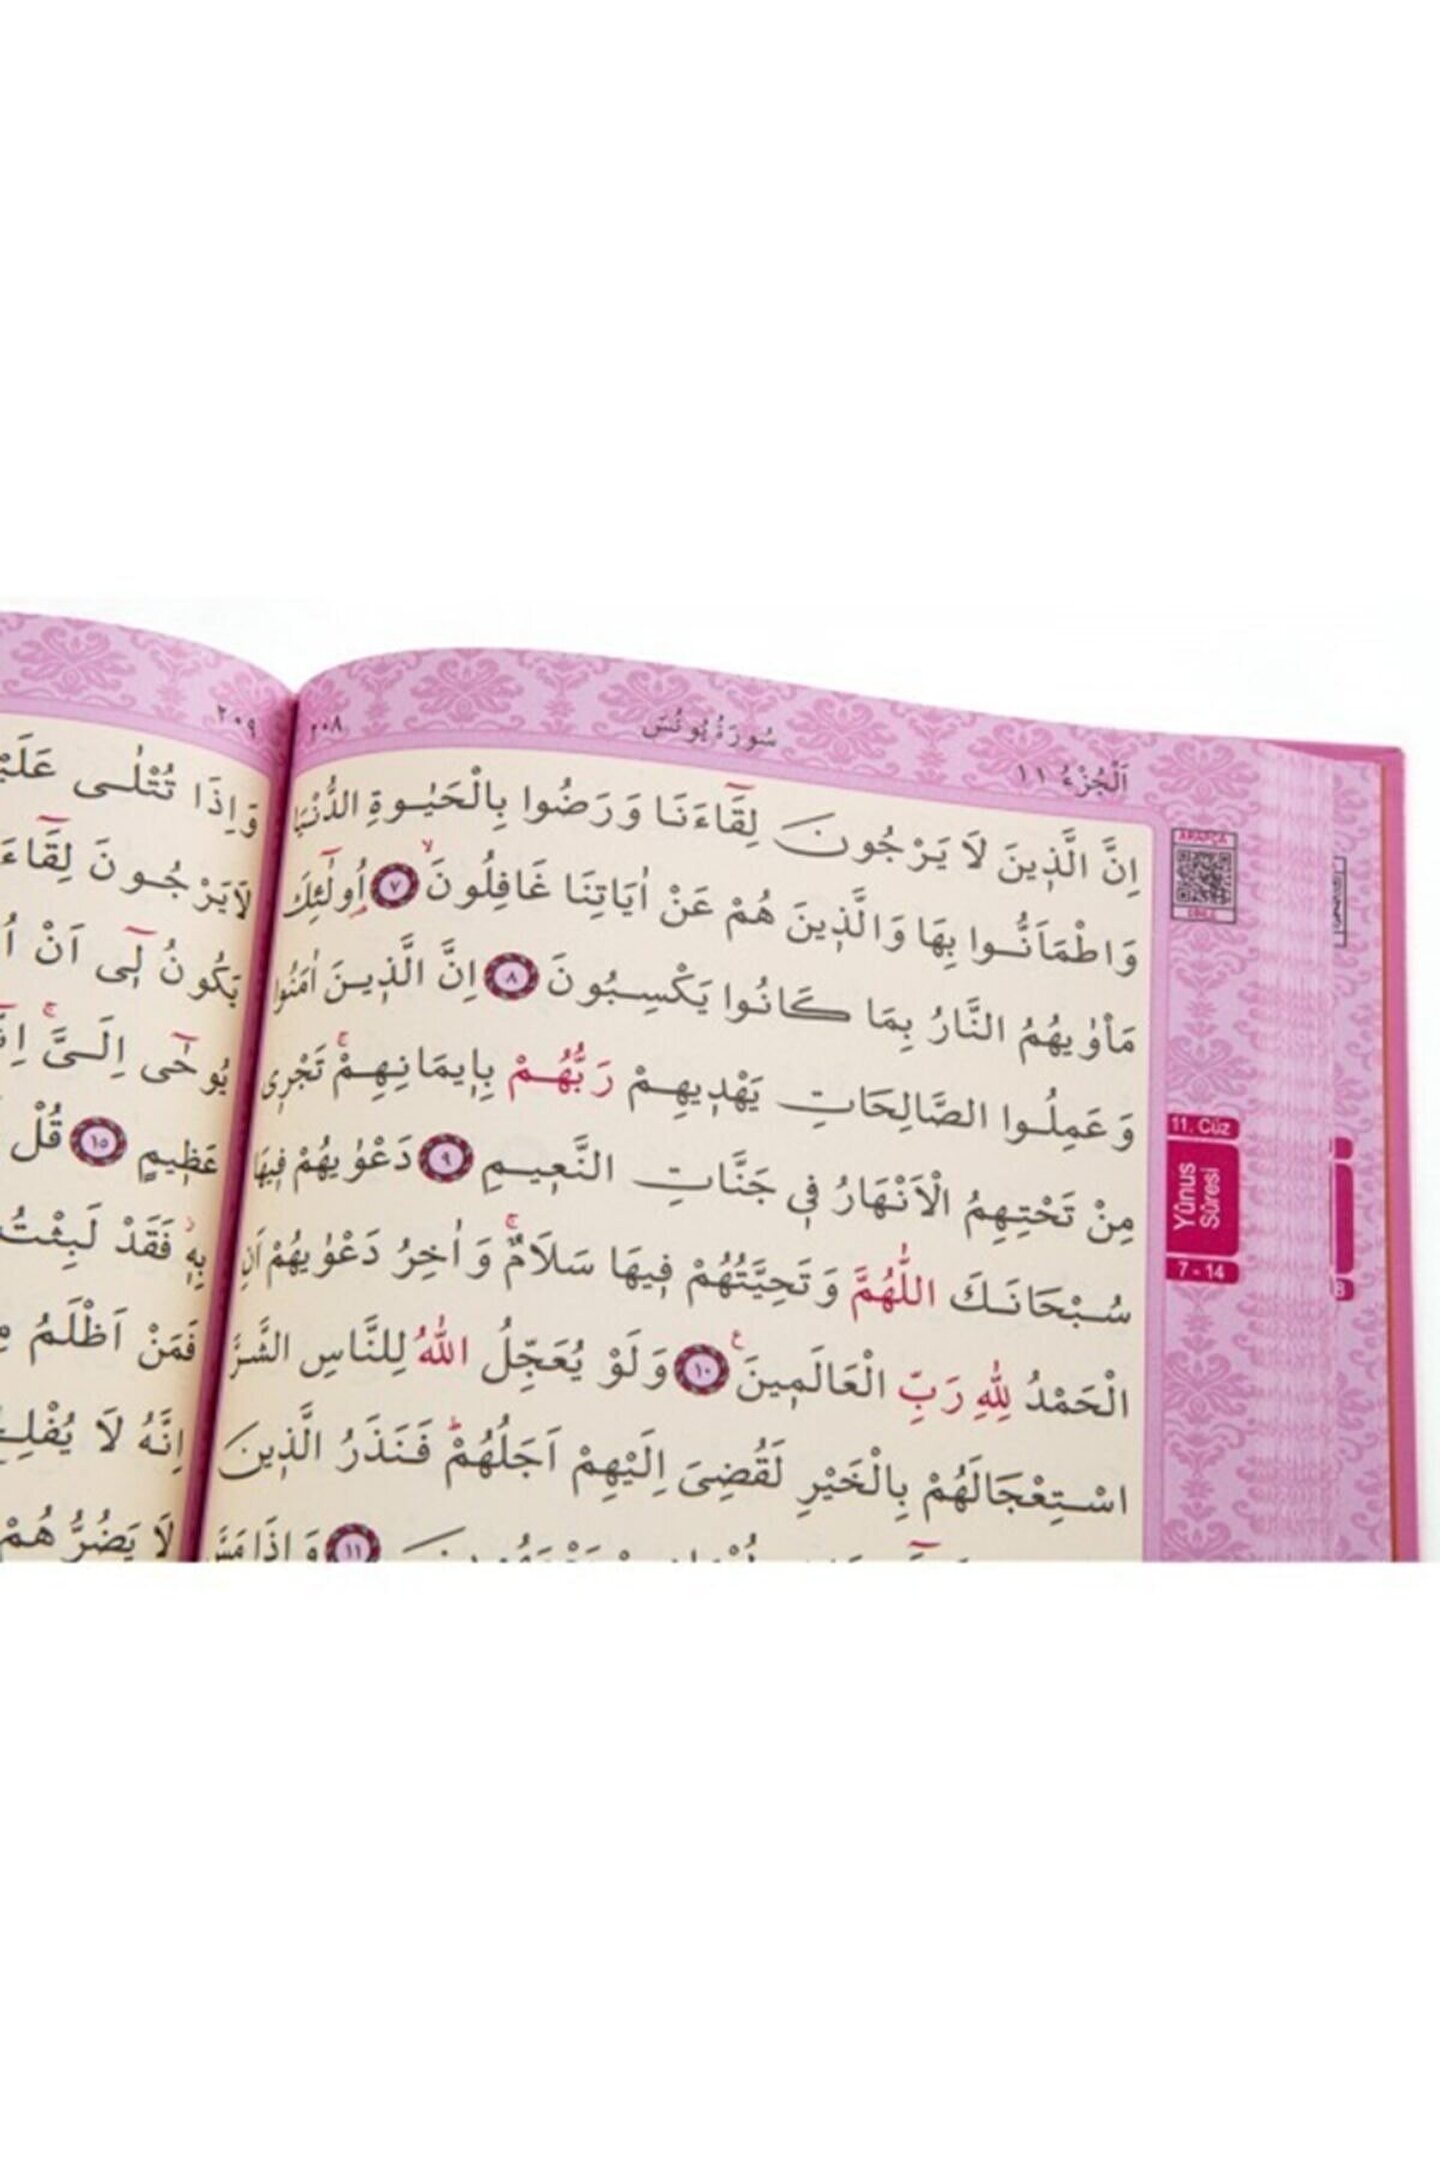 سُورَةُ يُونُسَ
اَلْجُزْءُ ١١
٢٠٨
اِنَّ الَّذ۪ينَ لَا يَرْجُونَ لِقَٓاءَنَا وَرَضُوا بِالْحَيٰوةِ الدُّنْيَا
وَاطْمَاَنُّوا بِهَا وَالَّذ۪ينَ هُمْ عَنْ اٰيَاتِنَا غَافِلُونَۙ ﴿٧﴾ اُو۬لٰٓئِكَ
مَأْوٰيهُمُ النَّارُ بِمَا كَانُوا يَكْسِبُونَ ﴿٨﴾ اِنَّ الَّذ۪ينَ اٰمَنُوا
وَعَمِلُوا الصَّالِحَاتِ يَهْد۪يهِمْ رَبُّهُمْ بِا۪يمَانِهِمْۚ تَجْر۪ي
مِنْ تَحْتِهِمُ الْاَنْهَارُ ف۪ي جَنَّاتِ النَّع۪يمِ ﴿٩﴾ دَعْوٰيهُمْ ف۪يهَا
سُبْحَانَكَ اللّٰهُمَّ وَتَحِيَّتُهُمْ ف۪يهَا سَلَامٌۚ وَاٰخِرُ دَعْوٰيهُمْ اَنِ
الْحَمْدُ لِلّٰهِ رَبِّ الْعَالَم۪ينَ۟ ﴿١٠﴾ وَلَوْ يُعَجِّلُ اللّٰهُ لِلنَّاسِ الشَّرَّ
اسْتِعْجَالَهُمْ بِالْخَيْرِ لَقُضِيَ اِلَيْهِمْ اَجَلُهُمْۜ فَنَذَرُ الَّذ۪ينَ
﴿١١﴾ وَاِذَا مَسَّ
ARAPÇA
11. Cüz
Yûnus
Sûresi
7 - 14
٢٠٩
وَاِذَا تُتْلٰى
لَا يَرْجُونَ
يَكُونُ ل۪ٓي اَنْ
يُوحٰٓى اِلَيَّۚ
عَظ۪يمٍ ﴿١٥﴾ قُلْ
بِه۪ۘ فَقَدْ لَبِثْتُ
فَمَنْ اَظْلَمُ
اِنَّهُ لَا
لَا يَضُرُّهُمْ